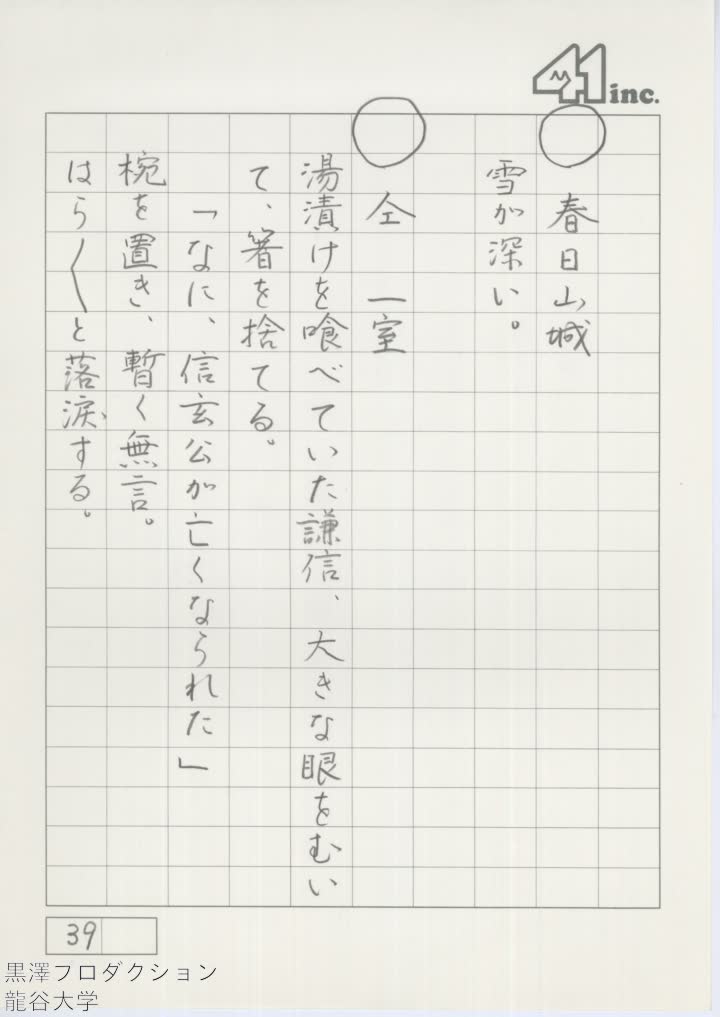 41 inc.
○ 春日山城
雪が深い。
○ 仝 一室
湯漬けを喰べていた謙信、大きな眼をむい
て、箸を捨てる。
「なに、信玄公が亡くなられた」
椀を置き、暫く無言。
はら〳〵と落涙する。
39
黒澤プロダクション
龍谷大学